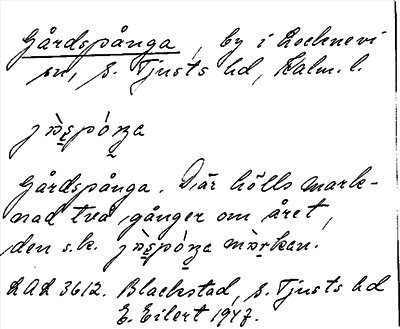 Gårdspånga, by i Locknevi
sn, S. Tjusts hd, Kalm. l.
Gårdspånga. Där hölls mark-
nad två gånger om året,
den s.k.
LAL 3612. Blackstad, S. Tjusts hd
E. Eilert 1947.